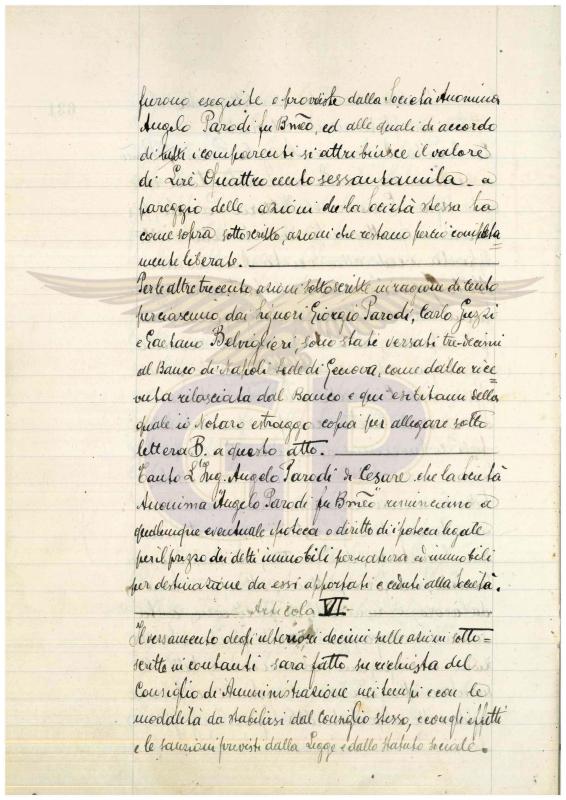 furono eseguite e provviste dalla Società Anonima
Angelo Parodi fu Bmeo, ed alle quali di accordo
di tutti i comparenti si attribuisce il valore
di Lire Quattrocentosessantamila - a
pareggio delle azioni che la Società stessa ha
come sopra sottoscritto, azioni che restano perciò completa=
mente liberate.
Per le altre trecento azioni sottoscritte in ragione di cento
per ciascuno, dai Signori Giorgio Parodi, Carlo Guzzi
e Gaetano Belviglieri, sono stati versati tre decimi
al Banco di Napoli Sede di Genova, come dalla rice=
vuta rilasciata dal Banco e qui esibitami della
quale io Notaro estraggo copia per allegare sotto
lettera B. a questo atto.
Tanto l'Ing. Angelo Parodi di Cesare che la Società
Anonima "Angelo Parodi fu Bmeo" rinunciano a
qualunque eventuale ipoteca o diritto di ipoteca legale
per il prezzo dei detti immobili per natura ed immobili
per destinazione da essi apportati e ceduti alla Società.
Articolo VI.
Il versamento degli ulteriori decimi sulle azioni sotto=
scritte in contanti sarà fatto su richiesta del
Consiglio di Amministrazione nei tempi e con le
modalità da stabilirsi dal Consiglio stesso, e con gli effetti
e le sanzioni previsti dalla Legge e dallo Statuto Sociale.
GP